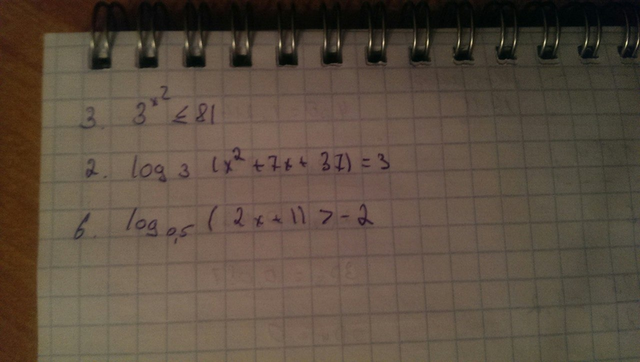 3. 3^x^2 ≤ 81
2. log 3 (x^2 + 7x + 37) = 3
6. log_0,5 ( 2x + 1) > -2